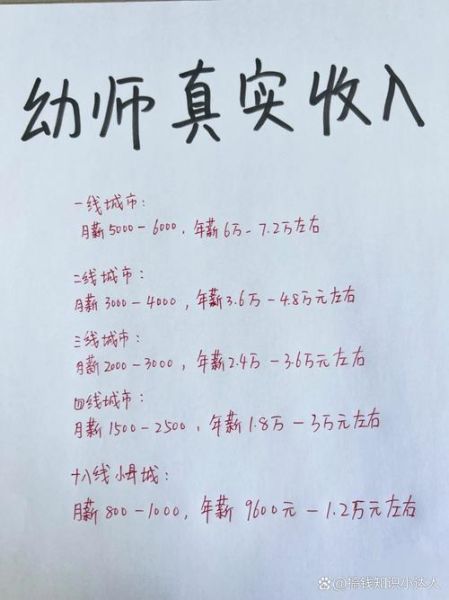 幼师真实收入
一线城市:
月薪5000-6000,年薪6万-7.2万左右
二线城市:
月薪3000-4000,年薪3.6万-4.8万元左右
三线城市:
月薪2000-3000,年薪2.4万-3.6万元左右
四线城市:
月薪1500-2500,年薪1.8万-3万元左右
十八线小县城:
月薪800-1000,年薪9600元-1.2万元左右
@搞钱知识小达人